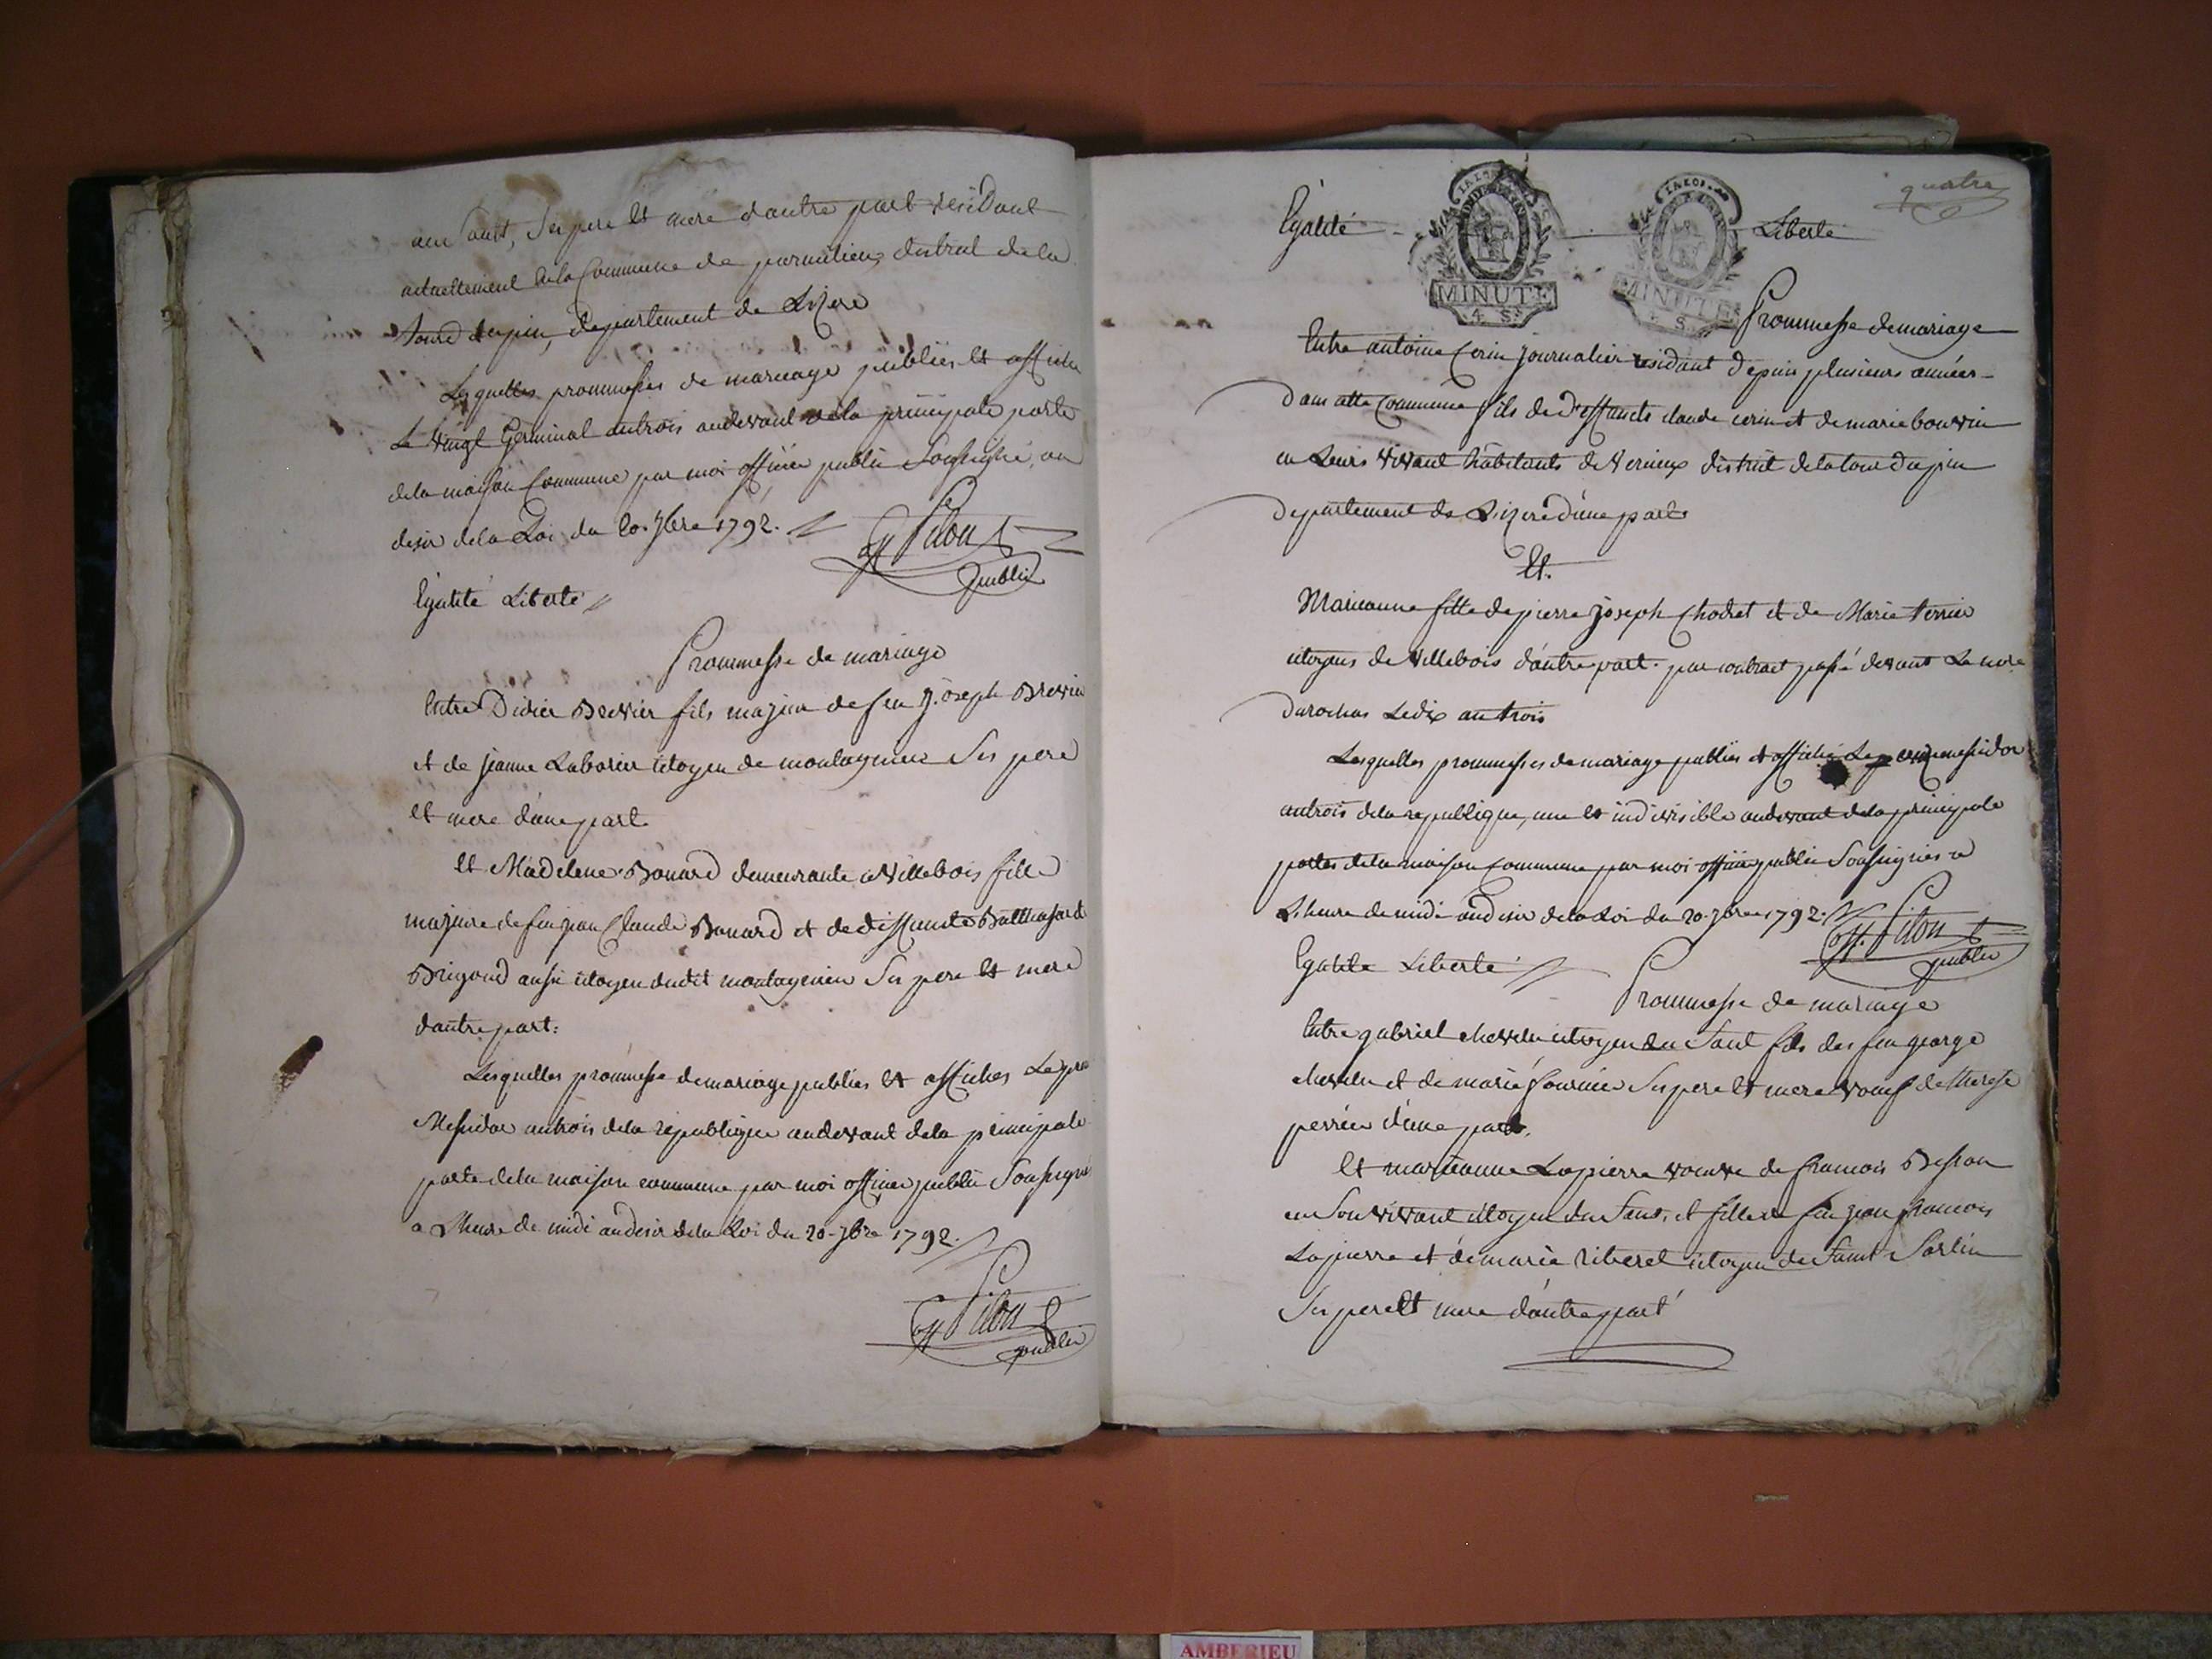 au Saut, Ses pere et mere d'autre part residant
actuellement de la Commune de parmilieu, district de la
Tour dupin, departement de Lizere
Lesquelles prommesses de mariage publiés et affiché
Le vingt Germinal an trois audevant de la principale porte
de la maison Commune par moi officier public Soussigné, au
desir de la Loi du 20. 7bre 1792.
off Pilon
public
Egalité Liberté
Prommesse de mariage
Entre Didier Brevier fils majeur de feu J. Joseph Brevier
et de jeanne Laborier citoyen de montagnieu Ses pere
et mere d'une part
et Madelene Bonard demeurante a Villebois fille
majeure de feu jean Claude Bonard et de deffuncte Balthasarde
Brigond aussi citoyen dudit montagnieu Ses pere et mere
d'autre part:
Lesquelles prommesse de mariage publies et affiches Le
Messidor an trois de la republique audevant de la principale
porte de la maison commune par moi officier public Soussigné
a Lheure de midi au desir de la Loi du 20-7bre 1792.
off Pilon
public
quatre
Egalité Liberté
MINUTE
4. S.
MINUTE
4. S.
Prommesse de mariage
Entre antoine Cerin journalier residant depuis plusieurs années
dans cette Commune fils de deffuncts claude cerin et de marie bouvin
en Leurs vivant habitants de Verieux district de la tour dupin
departement de Lizere d'une part
Et.
Marieanne fille de pierre joseph Chodet et de Marie terrier
citoyens de Villebois d'autre part. par contract passé devant Le nore
durochas Le dix an trois
Lesquelles prommesses de mariage publies et affiché Le messidor
an trois de la republique, une et indivisible audevant de la principale
portes de la maison Commune par moi officier public Soussignés a
L'heure de midi au desir de la Loi du 20. 7bre 1792.
off. Pilon
public
Egalité Liberté
Prommesse de mariage
Entre gabriel chevelu citoyen du Saut fils des feu george
chevelu et de marie fournier Ses pere et mere veuf de therese
perrier d'une part.
Et marieanne Lapierre veuve de francois Besson
en Son vivant citoyen du Saut, et fille de feu jean francois
Lapierre et de marie riberel citoyen de Saint Sorlin
Ses pere et mere d'autre part
AMBERIEU